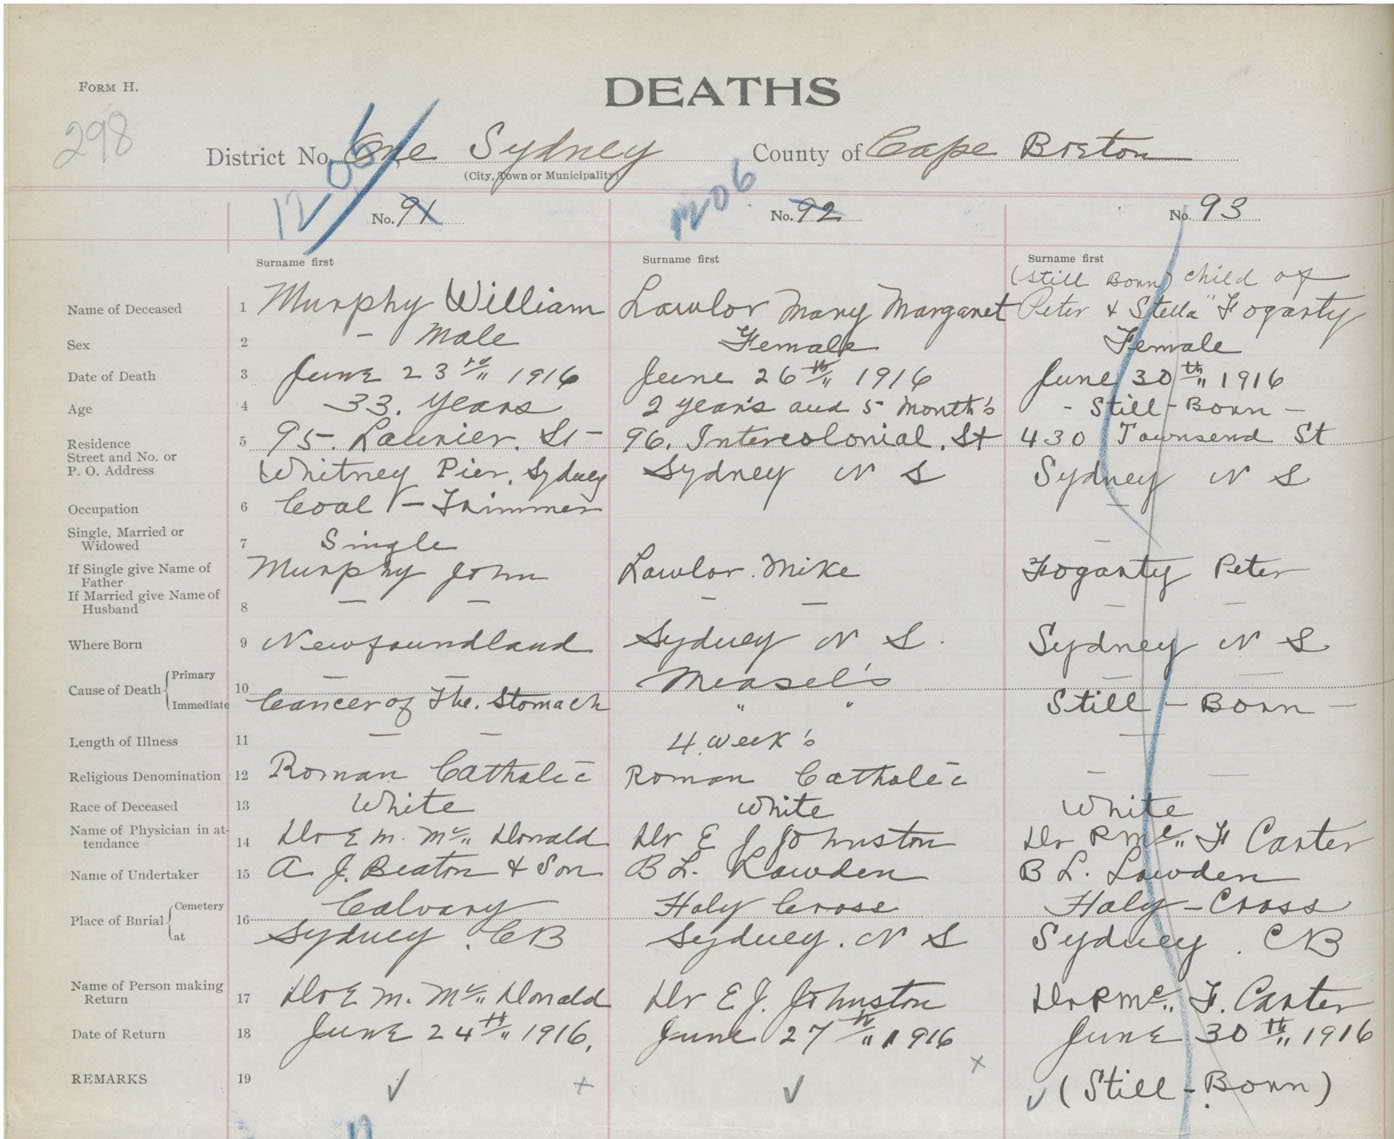 FORM H.
DEATHS
298
District No. One Sydney County of Cape Breton
(City, Town or Municipality)
12-06 No. 91
1206 No. 92
No. 93
Surname first Surname first Surname first
(Still Born) child of
Name of Deceased 1 Murphy William Lawlor Mary Margaret Peter & Stella Fogarty
Sex 2 - Male Female Female
Date of Death 3 June 23rd,, 1916 June 26th,, 1916 June 30th,, 1916
Age 4 33. Years 2 year's and 5 Month's - Still-Born -
Residence 5 95. Laurier. St- 96. Intercolonial. St 430 Townsend St
Street and No. or
P. O. Address Whitney Pier. Sydney Sydney N S Sydney N S
Occupation 6 Coal - Trimmer
Single, Married or
Widowed 7 Single
If Single give Name of
Father Murphy John Lawlor. Mike Fogarty Peter
If Married give Name of
Husband 8
Where Born 9 Newfoundland Sydney N S. Sydney N S
Cause of Death Primary 10 Measel's
Immediate Cancer of The. Stomach " " Still - Born -
Length of Illness 11 4. week's
Religious Denomination 12 Roman Catholic Roman Catholic
Race of Deceased 13 White White White
Name of Physician in at-
tendance 14 Dr E M. Mc,, Donald Dr E J Johnston Dr R Mc,, F Carter
Name of Undertaker 15 A J. Beaton & Son B L. Lowden B L. Lowden
Place of Burial Cemetery 16 Calvary Holy Cross Holy-Cross
at Sydney. CB Sydney. N S Sydney. CB
Name of Person making
Return 17 Dr E M. Mc,, Donald Dr E J. Johnston Dr R Mc,, F. Carter
Date of Return 18 June 24th,, 1916. June 27th,, 1916 June 30th,, 1916
REMARKS 19 ✓ + ✓ x ✓ (Still-Born)